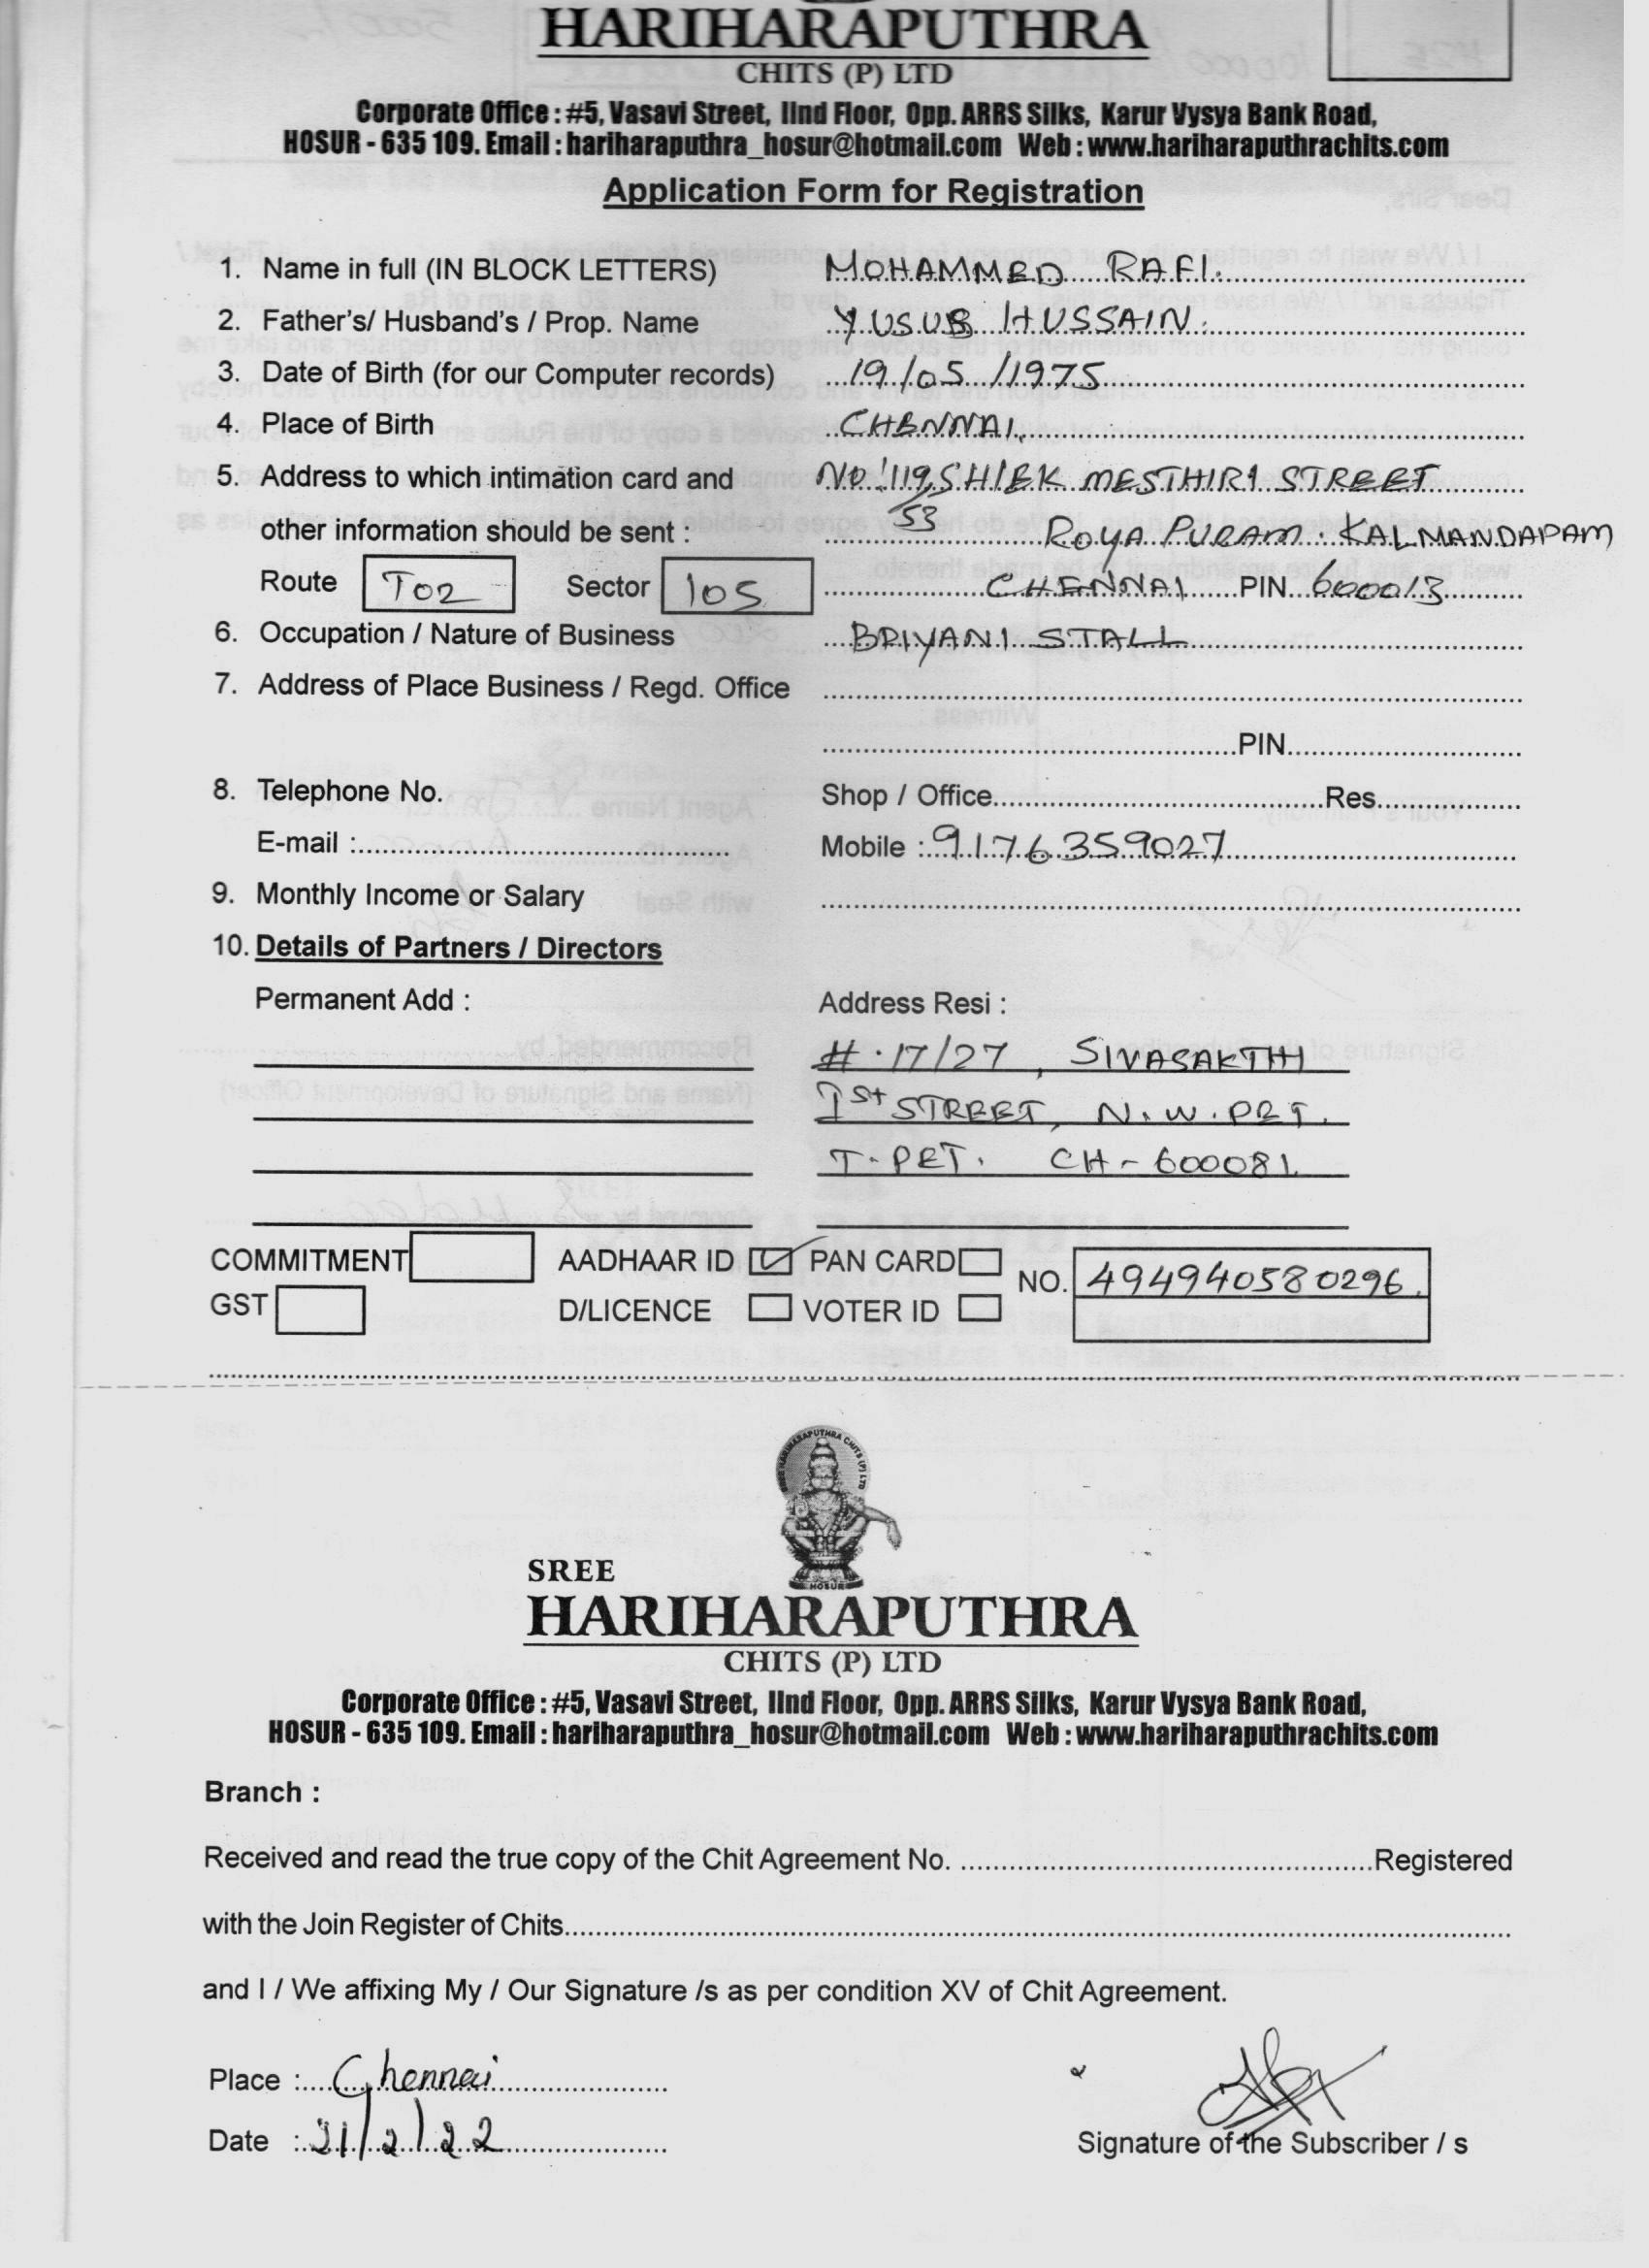 HARIHARAPUTHRA
CHITS (P) LTD
Corporate Office : #5, Vasavi Street, IInd Floor, Opp. ARRS Silks, Karur Vysya Bank Road,
HOSUR - 635 109. Email : hariharaputhra_hosur@hotmail.com Web : www.hariharaputhrachits.com
Application Form for Registration
1. Name in full (IN BLOCK LETTERS) MOHAMMED RAFI.
2. Father's/ Husband's / Prop. Name YUSUB HUSSAIN.
3. Date of Birth (for our Computer records) 19/05/1975
4. Place of Birth CHENNAI.
5. Address to which intimation card and NO! 119, SHIEK MESTHIRI STREET
other information should be sent : 53 ROYA PURAM. KALMANDAPAM
Route T02 Sector 105 CHENNAI PIN 600013
6. Occupation / Nature of Business BRIYANI STALL
7. Address of Place Business / Regd. Office
PIN
8. Telephone No. Shop / Office Res.
E-mail : Mobile : 9176359027
9. Monthly Income or Salary
10. Details of Partners / Directors
Permanent Add : Address Resi :
#.17/27, SIVASAKTHI
1st STREET, N.W.PET.
T.PET. CH-600081.
COMMITMENT AADHAAR ID PAN CARD NO. 494940580296.
GST D/LICENCE VOTER ID
SREE HARIHARAPUTHRA CHITS (P) LTD
HOSUR
SREE
HARIHARAPUTHRA
CHITS (P) LTD
Corporate Office : #5, Vasavi Street, IInd Floor, Opp. ARRS Silks, Karur Vysya Bank Road,
HOSUR - 635 109. Email : hariharaputhra_hosur@hotmail.com Web : www.hariharaputhrachits.com
Branch :
Received and read the true copy of the Chit Agreement No. Registered
with the Join Register of Chits
and I / We affixing My / Our Signature /s as per condition XV of Chit Agreement.
Place : Chennai
Date : 21/2/22
Signature of the Subscriber / s